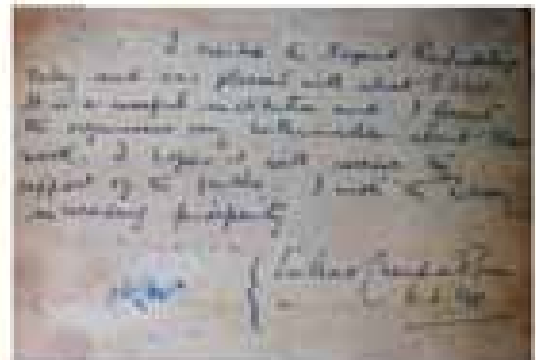 I visited the
today and was pleased with what I saw.
It is a useful institution and I found
the organisers very enthusiastic about their
work. I hope it will receive the
support of the public. I wish the library
increasing prosperity
Subhas Chandra Bose